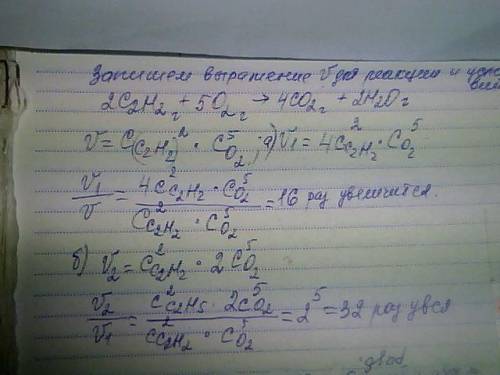 Запишем выражение V для реакции и
2C₂H₂г + 5O₂г → 4CO₂г + 2H₂Oг
V = C(C₂H₂)² · C⁵O₂; а) V₁ = 4C²C₂H₂ · CO₂⁵
V₁/V = 4C²C₂H₂ · C⁵O₂ / C²C₂H₂ · C⁵O₂ = 16 раз увеличится.
б) V₂ = C²C₂H₂ · 2C⁵O₂
V₂/V₁ = C²C₂H₅ · 2C⁵O₂ / C²C₂H₂ · C⁵O₂ = 2⁵ = 32 раз увся